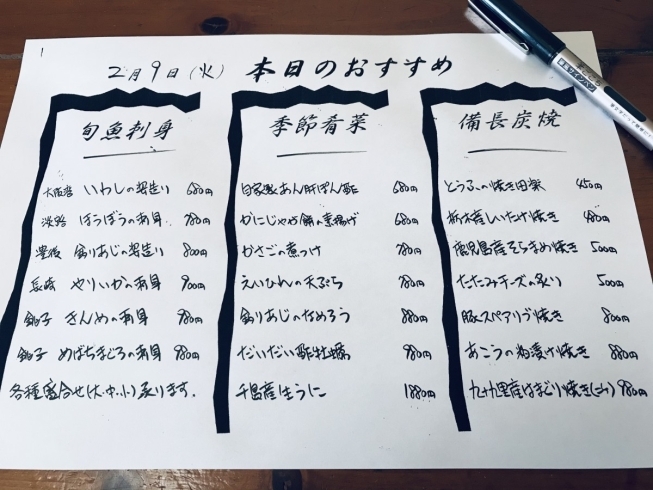 1
2月9日(火) 本日のおすすめ
旬魚刺身
大阪湾 いわしの姿造り 680円
淡路 ほうぼうの刺身 780円
豊後 釣りあじの姿造り 800円
長崎 やりいかの刺身 900円
銚子 きんめの刺身 980円
銚子 めばちまぐろの刺身 980円
各種盛合せ(大・中・小)承ります.
季節肴菜
自家製あん肝ぽん酢 680円
かにじゃが餅の煮揚げ 680円
かさごの煮つけ 780円
えいひれの天ぷら 780円
釣りあじのなめろう 880円
だいだい酢牡蠣 980円
千島産生うに 1880円
備長炭焼
とうふの焼き田楽 450円
栃木産しいたけ焼き 480円
鹿児島産そらまめ焼き 500円
たたみチーズの炙り 500円
豚スペアリブ焼き 800円
あこうの粕漬け焼き 880円
九十九里産はまぐり焼き(二ケ) 980円